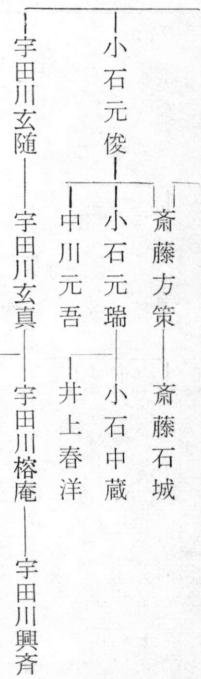 斎藤方策
斎藤石城
小石元俊
小石元瑞
小石中蔵
中川元吾
井上春洋
宇田川玄随
宇田川玄真
宇田川榕庵
宇田川興斉